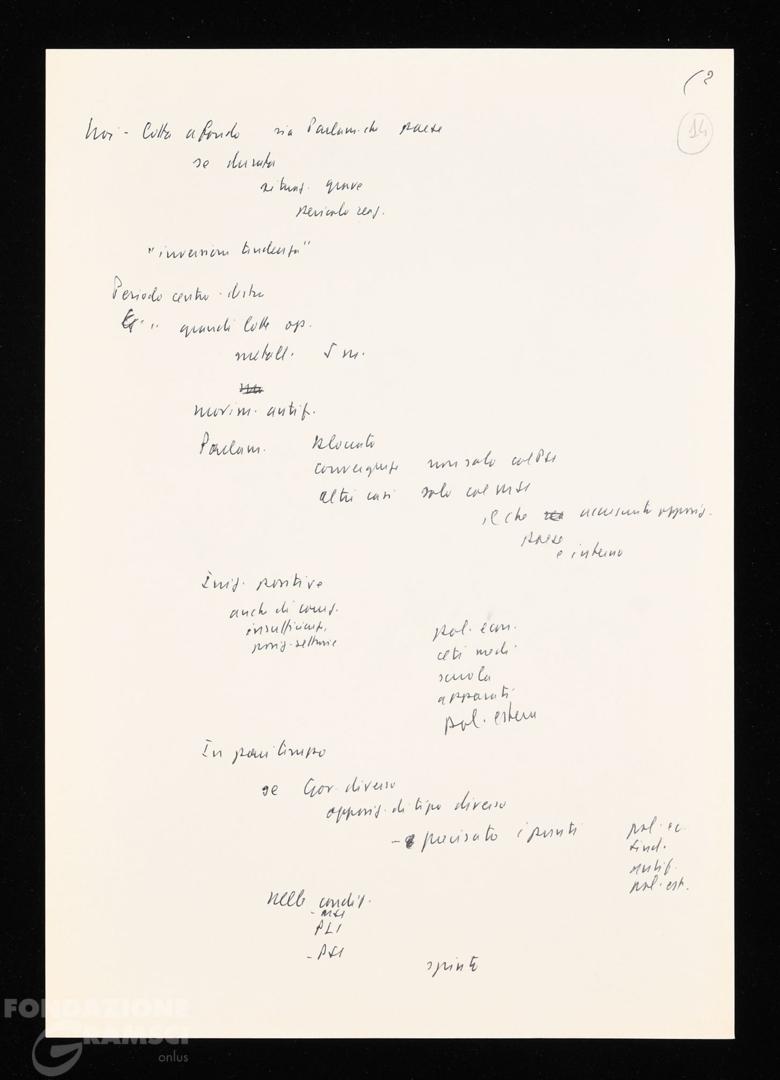 14
Noi - Lotta a fondo sia Parlam. che paese
se durata
situaz. grave
pericolo reaz.
"inversione tendenza"
Periodo centro-destra
" grandi lotte op.
metall. 5 m.
movim. antif.
Parlam. bloccato
convergenze non solo col PSI
altri casi solo col MSI
il che accresciuto opposiz.
paese
e interno
Iniz. positive
anche di cong.
insufficienze,
posiz. settarie
pol. econ.
ceti medi
scuola
apparati
pol. estera
In pari tempo
se Gov. diverso
opposiz. di tipo diverso
- precisato i punti pol. ec.
sind.
antif.
pol. est.
Nelle condiz.
- MSI
PLI
- PSI
spinte
FONDAZIONE
GRAMSCI
onlus